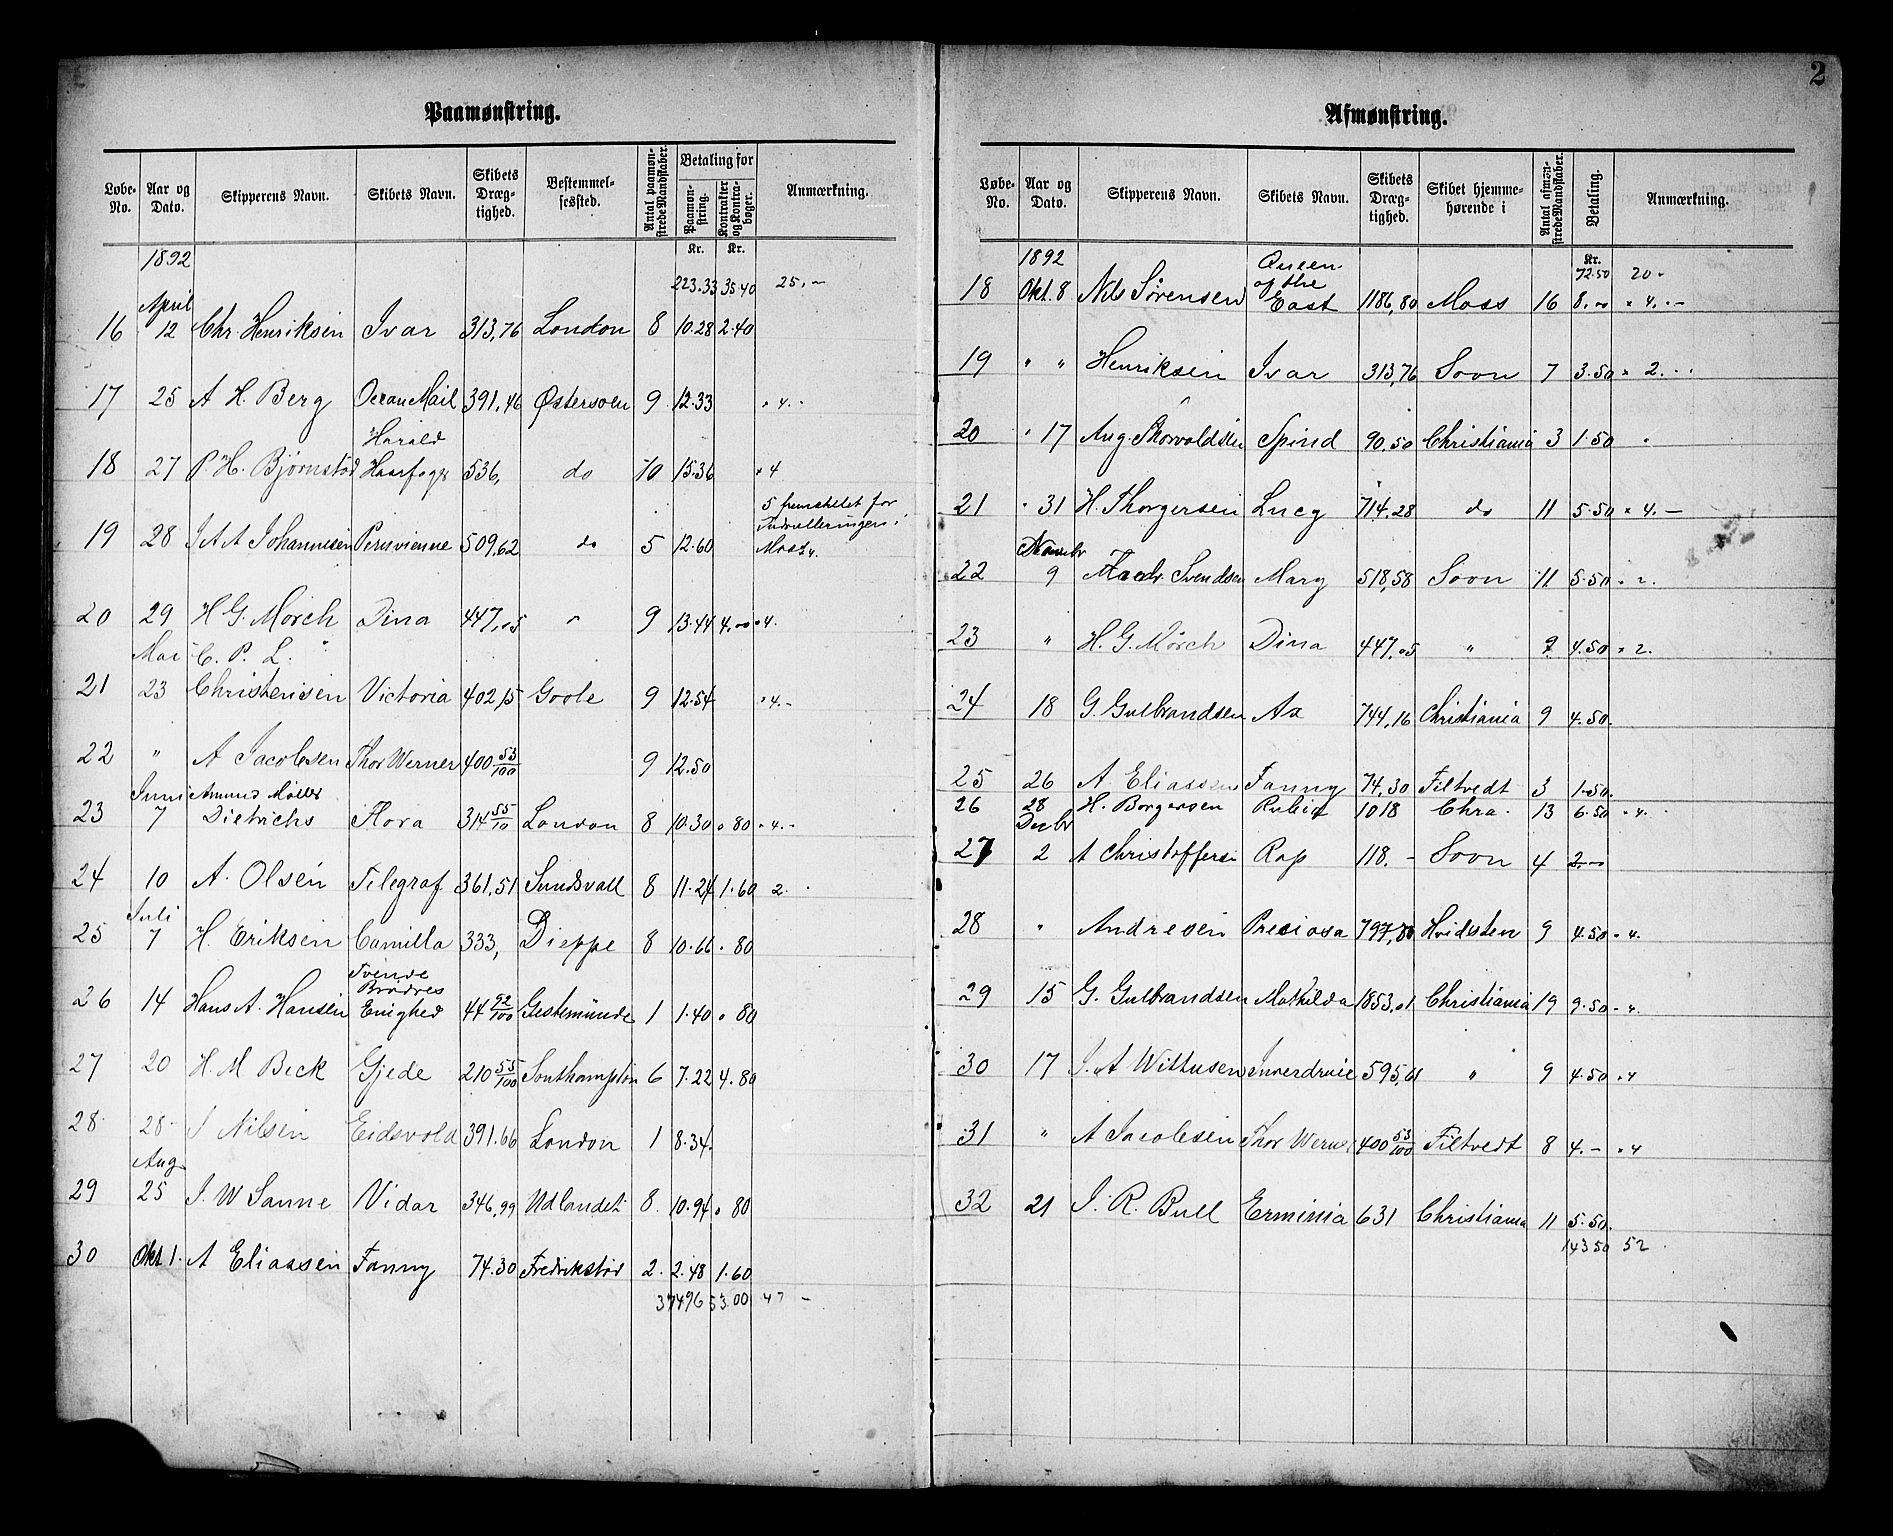 2
Paamønstring.
Løbe-No. Aar og Dato. Skipperens Navn. Skibets Navn. Skibets Dræg-tighed. Bestemmel-sessted. Antal paamøn-strede Mandskaber. Betaling for Paamøn-string. Kontrakter og Kontra-bøger. Anmærkning.
Kr. Kr.
1892
223.33 35.40 25.-
April
16 12 Chr Henriksen Ivar 313,76 London 8 10.28 2.40
17 25 A H. Berg Ocean Mail 391,46 Østersøen 9 12.33 " 4. -
Harald
18 27 P H. Bjørnstad Haarfager 536, do 10 15.36 " 4
5 fremstillet for
19 28 J A A Johannesen Peruvienne 509,62 do 5 12.60 Moss 4.
20 29 H G. Mørch Dina 447,05 " 9 13.44 4.- " 4.
Mai C. P. L.
21 23 Christensen Victoria 402,15 Goole 9 12.54 " 4.-
22 " A Jacobsen Thor Werner 400 53/100 9 12.50
Juni Amund Møller
23 7 Dietrichs Flora 314 55/10 London 8 10.30 " 80 " 4.-
24 10 A. Olsen Telegraf 361,51 Sundsvall 8 11.24 1.60 2.
Juli
25 7 H. Eriksen Camilla 333, Dieppe 8 10.66 " 80
Tvende
Brødres
26 14 Hans A. Hansen Enighed 44 92/100 Gestemünde 1 1.40 " 80
27 20 H. M Beck Gjede 210 55/100 Southampton 6 7.22 4.80
28 28 J Nilsen Eidsvold 391.66 London 1 8.34.
Aug
29 25 J. W Sanne Vidar 346,99 Udlandet 8. 10.94 " 80
30 Okt 1. A Eliassen Fanny 74.30 Fredrikstad 2. 2.48 1.60
374 96 53.00 47 -
Afmønstring.
Løbe-No. Aar og Dato. Skipperens Navn. Skibets Navn. Skibets Dræg-tighed. Skibet hjemme-hørende i Antal afmøn-strede Mandskaber. Betaling. Anmærkning.
Kr.
1892 Queen 72.50 20 -
of the
18 Okt. 8 Nils Sørensen East 1186,80 Moss 16 8.- " 4.-
19 " " Henriksen Ivar 313,76 Soon 7 3.50 " 2.
20 " 17 Aug. Thorvaldsen Spind 90.50 Christiania 3 1.50
21 " 31 H. Thorgersen Lucy 714.28 do 11 5.50 " 4.-
Novbr
22 9 Fredr. Svendsen Mary 518,58 Soon 11 5.50 " 2.
23 " H. G. Mørch Dina 447,05 " 9 4.50 " 2.
24 18 G. Gulbrandsen Ax 744,16 Christiania 9 4.50.
25 26 A Eliassen Fanny 74,30 Filtvedt 3 1.50.
26 28 H. Borgersen 1018 Chra. 13 6.50 " 4.
Decbr
27 2 A Christoffersen Rap 118.- Soon 4 2.-
28 " Andresen Preciosa 797,80 Hvidsten 9 4.50 " 4.
29 15 G. Gulbrandsen Mathilda 1853,01 Christiania 19 9.50 " 4.
30 17 J. A Wittusen Inverdruie 595,61 " 9 4.50 " 4
31 " A Jacobsen Thor Werner 400 53/100 Filtvedt 8 4.- " 4
32 21 J. R. Bull Erminia 631 Christiania 11 5.50.
143 50 52